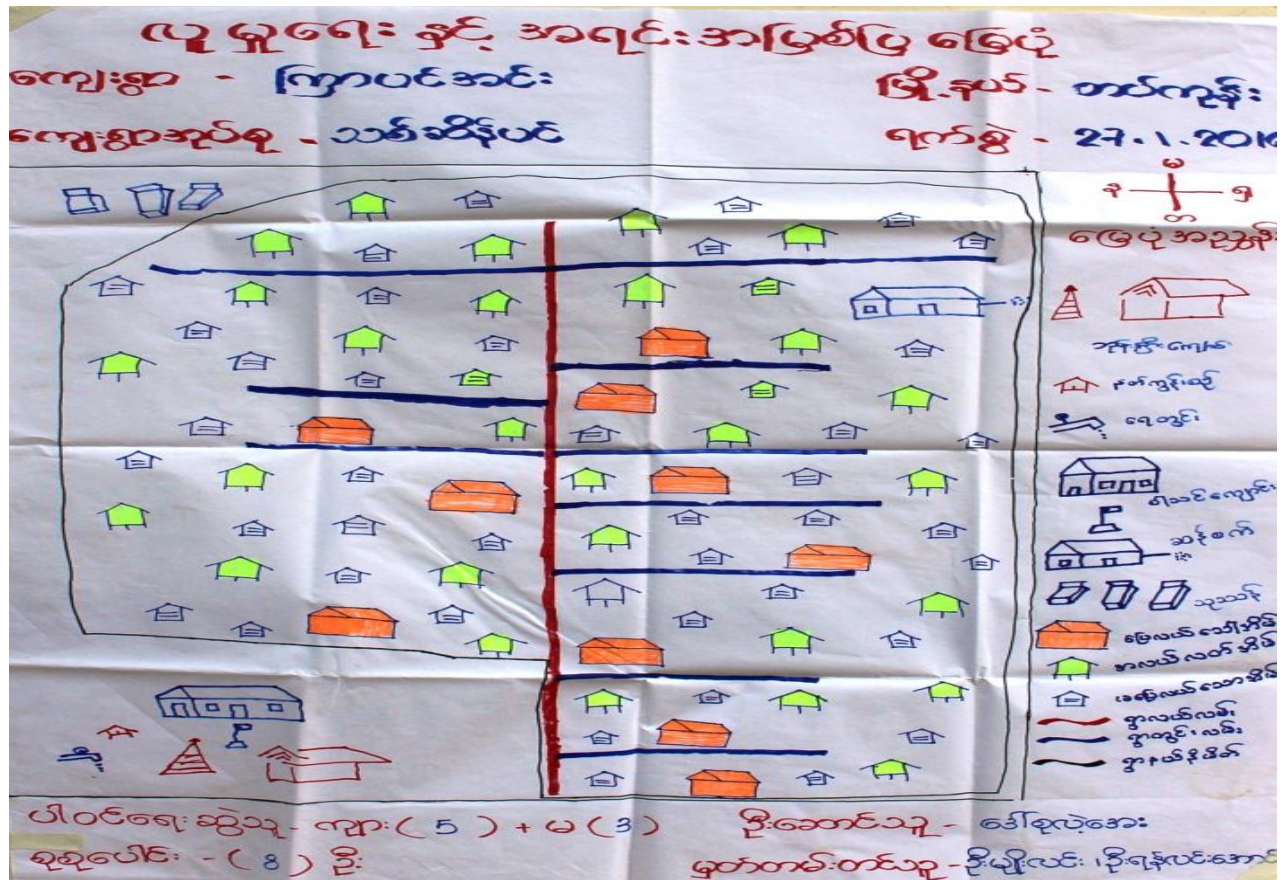 လူမှုရေး နှင့် အရင်းအမြစ်ပြ မြေပုံ
ကျေးရွာ - ကြာပင်အင်း မြို့နယ် - တပ်ကုန်း
ကျေးရွာအုပ်စု - သစ်ဆိမ့်ပင် ရက်စွဲ - 27.1.201
မ
န
တ
မြေပုံအညွှန်း
ဘုန်းကြီးကျောင်း
နတ်ကွန်းစဉ်
ရေတွင်း
စာသင်ကျောင်း
ဆန်စက်
သုသာန်
အလယ်လတ်အိမ်
ရွာလယ်လမ်း
ရွာတွင်းလမ်း
ရွာနယ်နိမိတ်
ပါဝင်ရေးဆွဲသူ - ကျား ( 5 ) + မ ( 3 ) ဦးဆောင်သူ - ဒေါ်စုလဲ့အေး
စုစုပေါင်း - ( 8 ) ဦး မှတ်တမ်းတင်သူ - ဦးမျိုးလင်း ၊ ဦးရန်လင်းအောင်